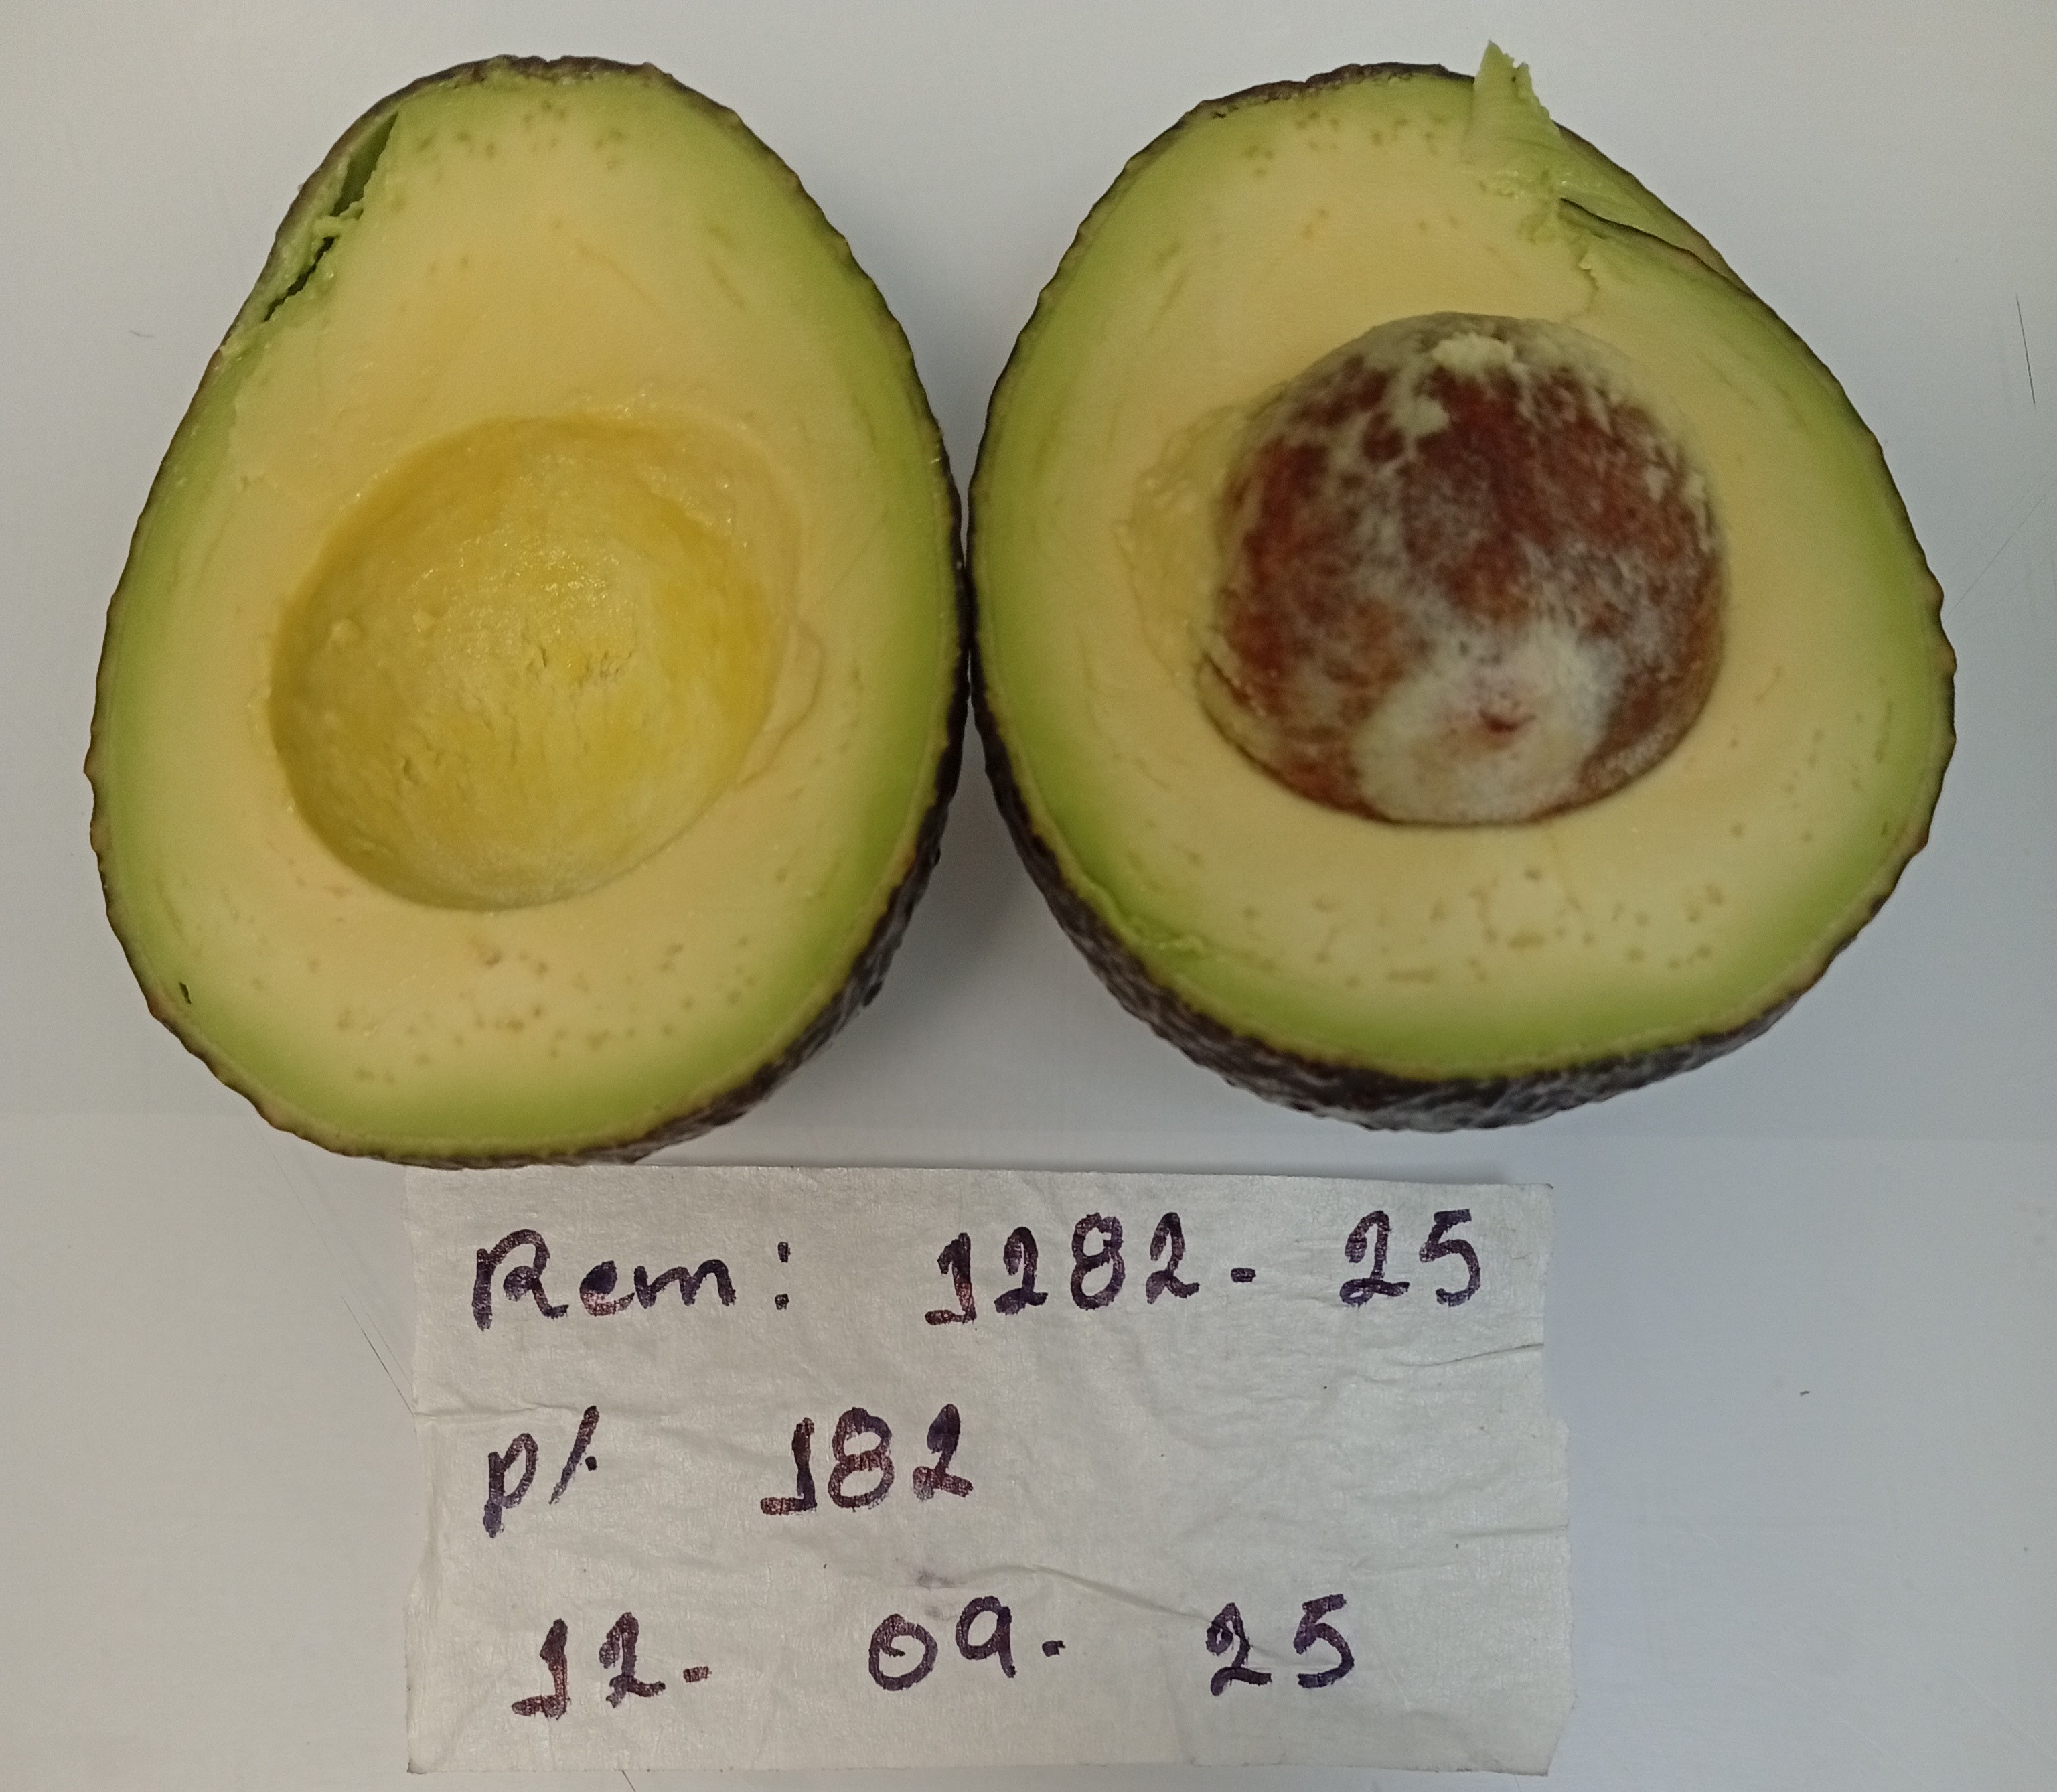 Rem: 1282-25
P/. 182
12-09-25